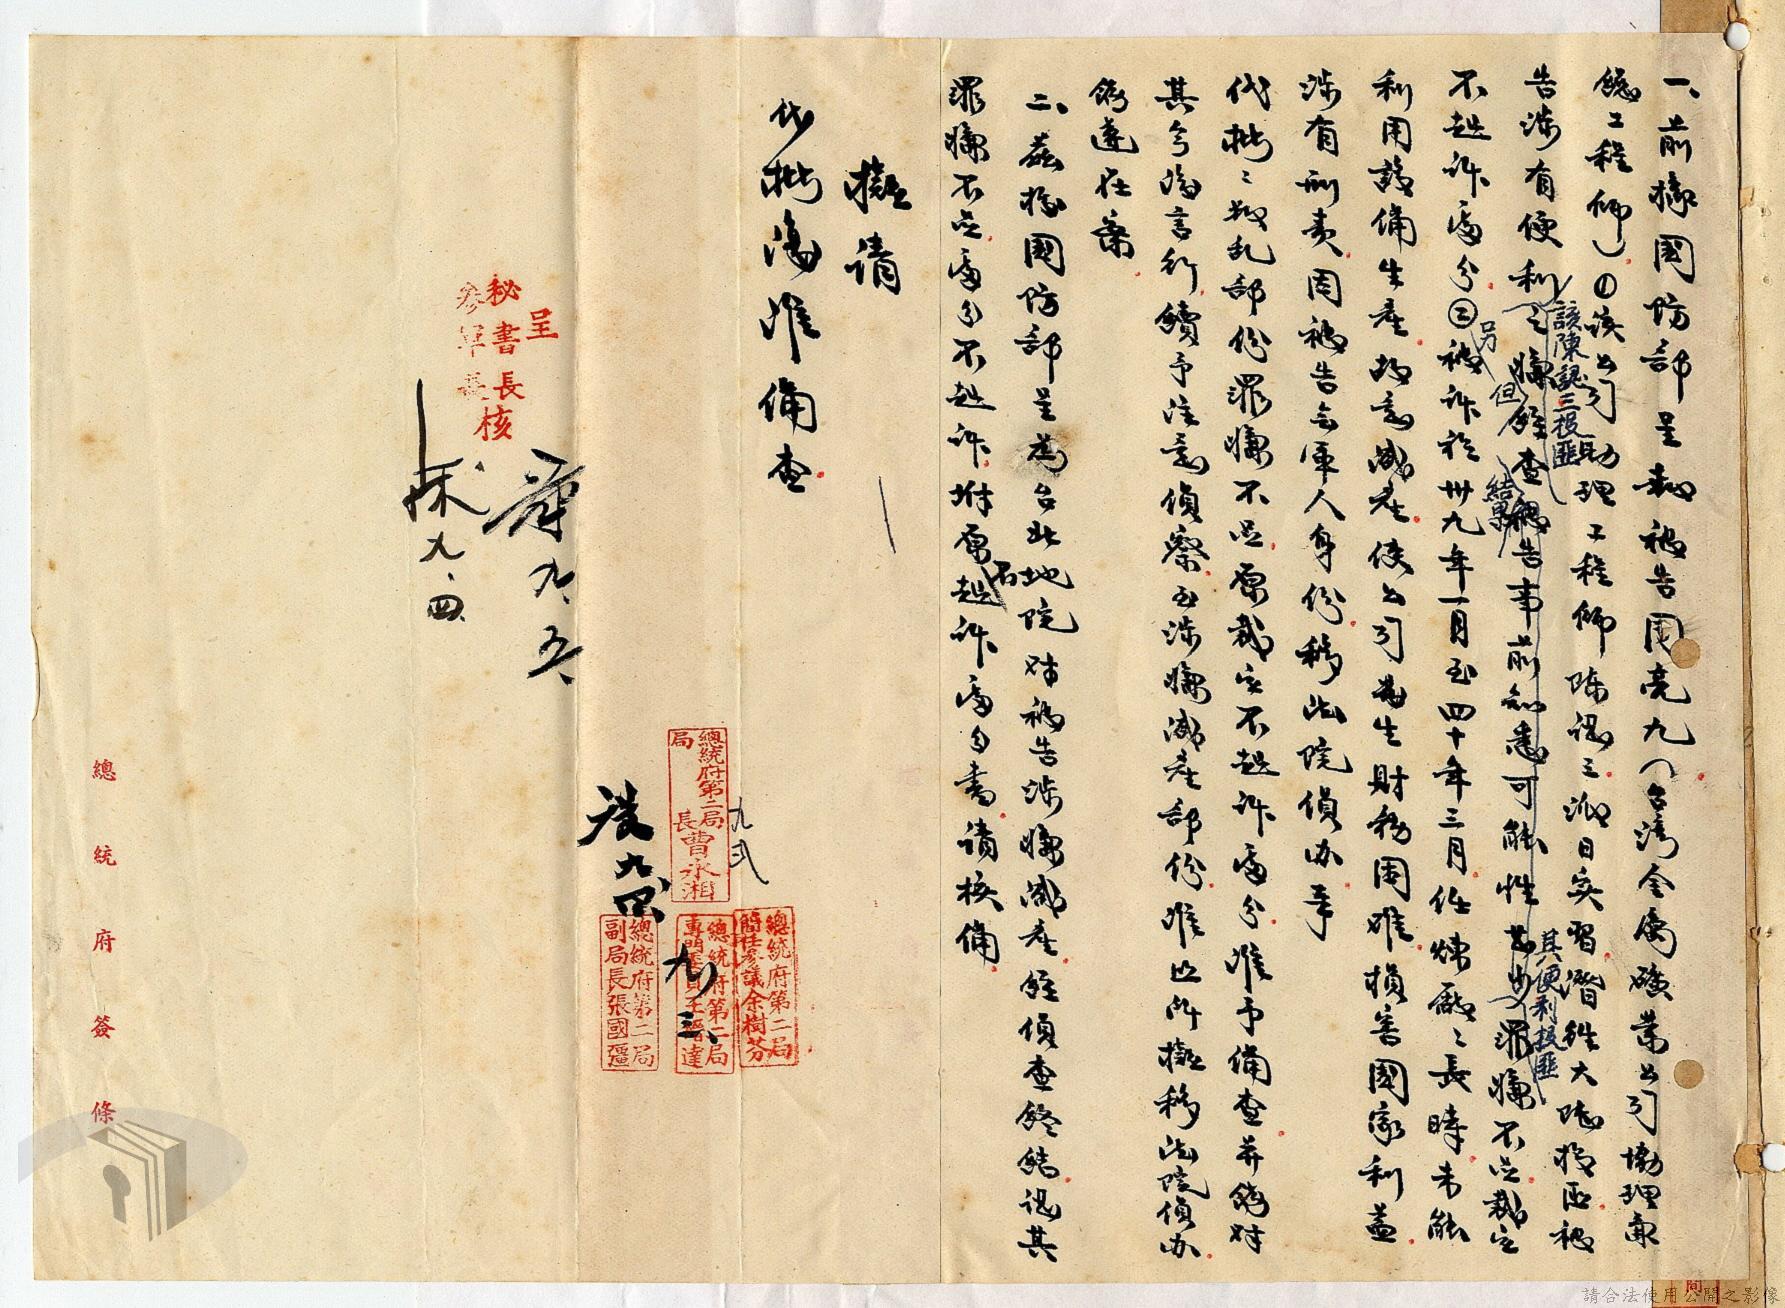 一、前據國防部呈為被告周亮九(台灣金屬礦業公司協理兼
總工程師)①該公司助理工程師陳認三派日實習潛往大陸投匪被
告涉有便利之嫌經查被告事前知悉可能性甚少罪嫌不足裁定
該陳認三投匪
結果
其便利投匪
不起訴處分②被訴於卅九年一月至四十年三月任煉廠之長時未能
另
但
利用設備生產故意減產使公司發生財務困難損害國家利益
涉有刑責因被告無軍人身份移法院偵辦等
代批:叛亂部份罪嫌不足原裁定不起訴處分准予備查并飭對
其今後言行續予注意偵察至涉嫌減產部份准照所擬移法院偵辦
飭遵在案
二、茲據國防部呈為台北地院對被告涉嫌減產經偵查終結認其
罪嫌不足處分不起訴附原不起訴處分書請核備
擬請
代批復准備查
呈
秘書長
參軍長
核
九、五
九、四
總統府第二局
局長曹永湘
九弍
總統府第二局
簡任參議余樹芬
總統府第二局
九、三
總統府第二局
副局長張國疆
總統府簽條
請合法使用公開之影像